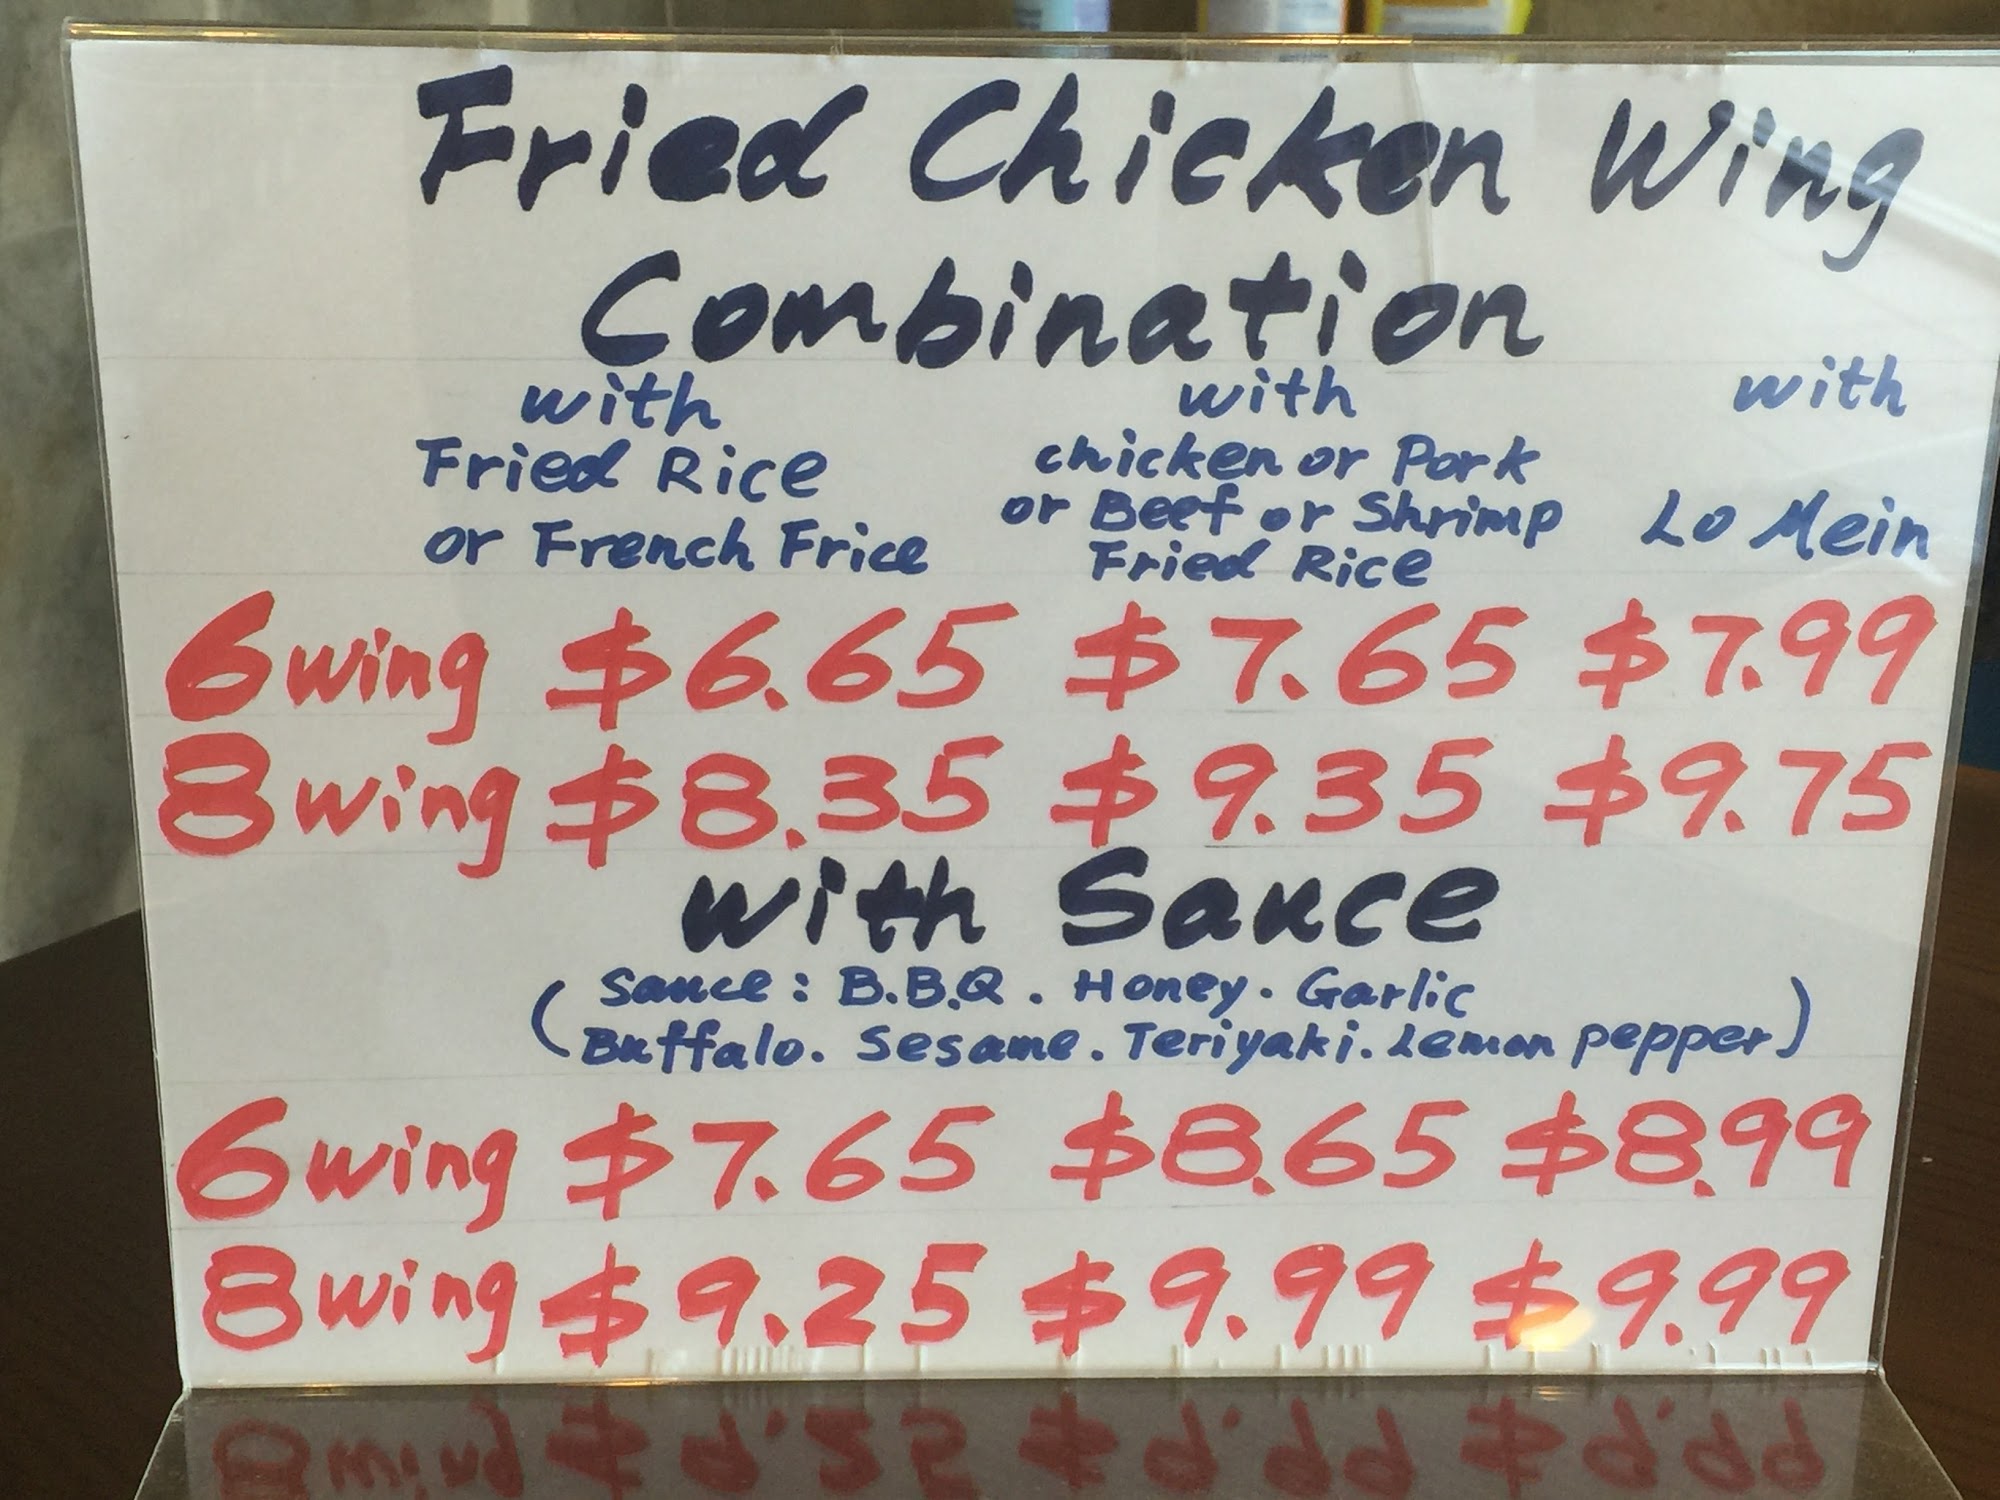 Fried Chicken Wing
Combination
with with with
Fried Rice chicken or Pork
or French Frice or Beef or Shrimp Lo Mein
Fried Rice
6 wing $6.65 $7.65 $7.99
8 wing $8.35 $9.35 $9.75
with Sauce
(Sauce: B.B.Q. Honey. Garlic
Buffalo. Sesame. Teriyaki. Lemon pepper)
6 wing $7.65 $8.65 $8.99
8 wing $9.25 $9.99 $9.99